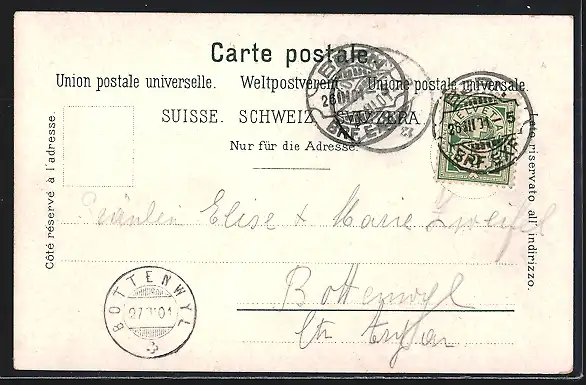 Carte postale.
Union postale universelle. Weltpostverein. Unione postale universale.
SUISSE. SCHWEIZ. SVIZZERA.
Nur für die Adresse.
Côté réservé à l'adresse.
Lato riservato all'indirizzo.
BRF. EXP.
BRF. EXP.
Fräulein Elise & Marie Zweifel
Bottenwyl
Ct. Argau
BOTTENWYL